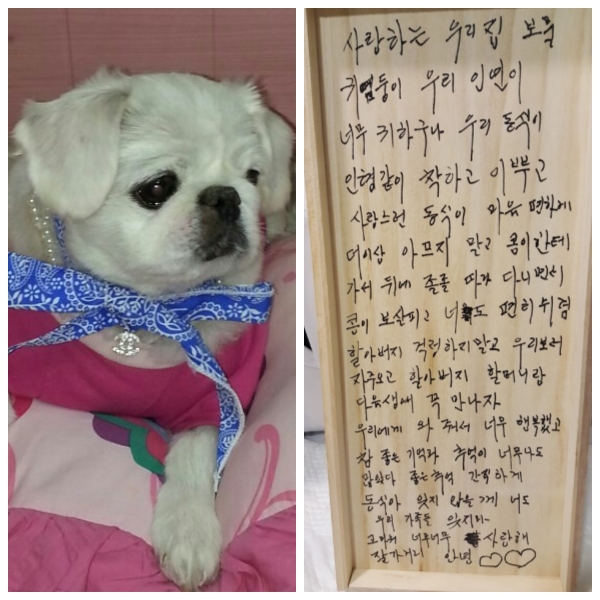 사랑하는 우리집 보물
귀염둥이 우리 인연이
너무 귀하구나 우리 동식이
인형같이 착하고 이뿌고
사랑스런 동식이 마음 편하게
더이상 아프지 말고 콩이한테
가서 뒤에 졸졸 따라 다니면서
콩이 보살피고 너도 편히 쉬렴
할아버지 걱정하지말고 우리보러
자주오고 할아버지 할머니랑
다음생에 꼭 만나자
우리에게 와 줘서 너무 행복했고
참 좋은 기억과 추억이 너무나도
많았다 좋은추억 간직하게
동식아 잊지 않을께 너도
우리 가족들 잊지마
고마워 너무너무 사랑해
잘가거라 안녕